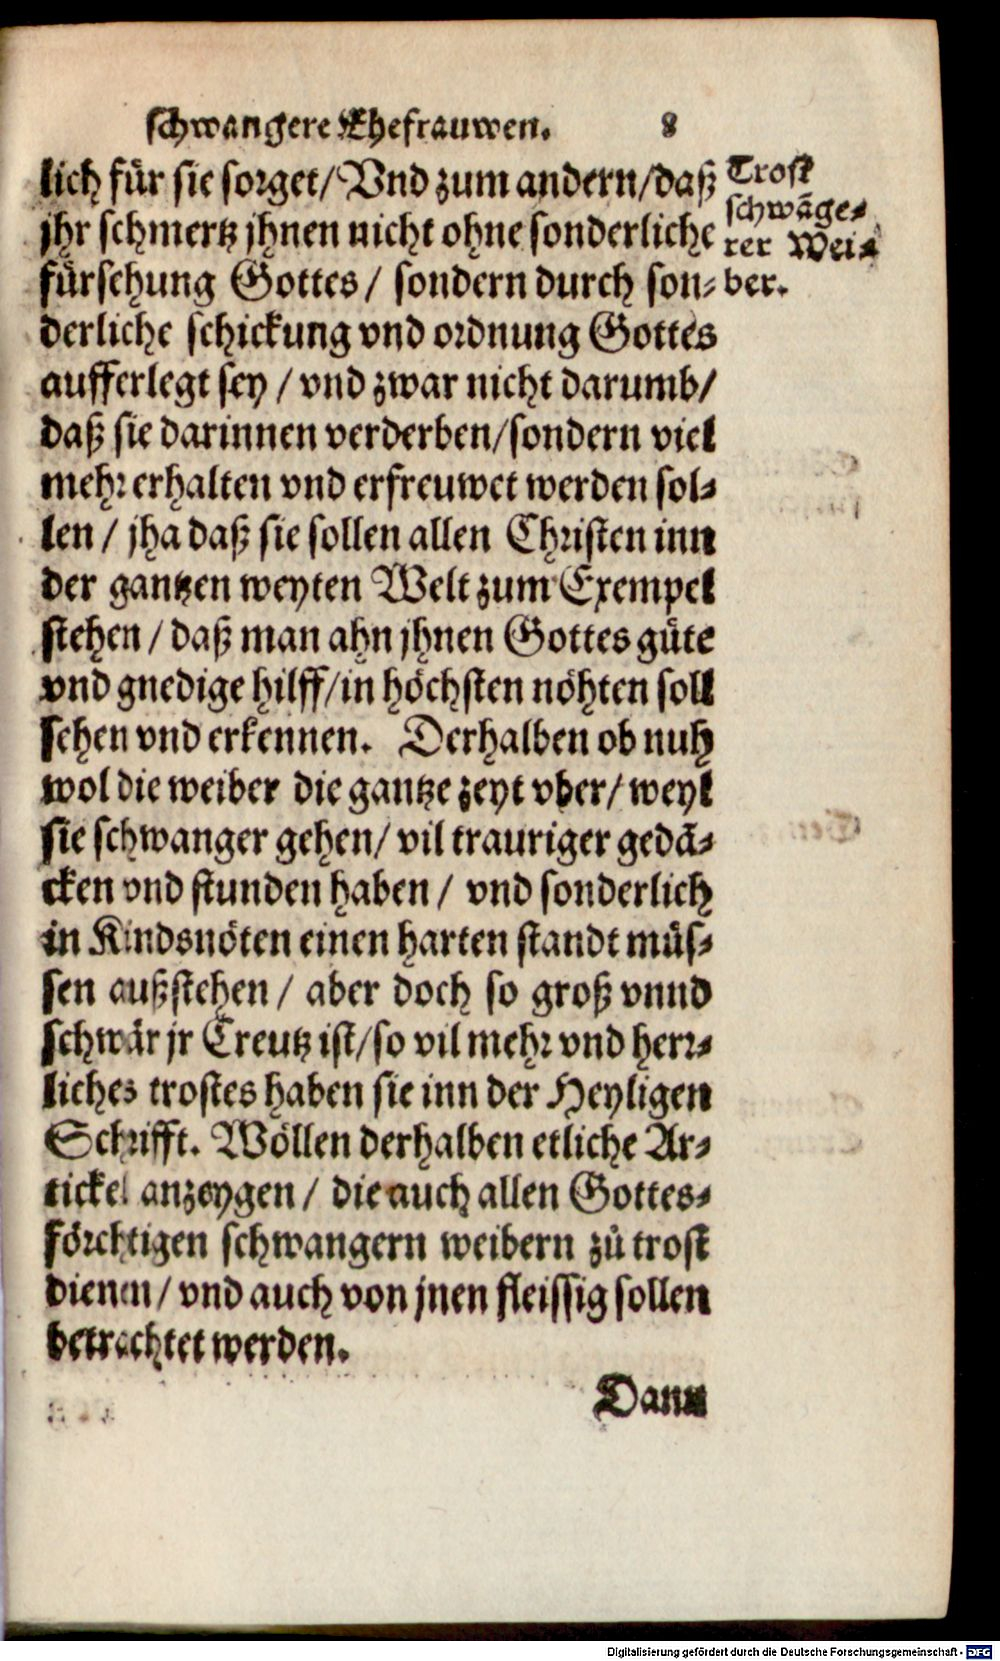 schwangere Ehefrauwen. 8
lich für sie sorget/ Vnd zum andern/ daß
jhr schmertz jhnen nicht ohne sonderliche
fürsehung Gottes/ sondern durch son⸗
derliche schickung vnd ordnung Gottes
aufferlegt sey/ vnd zwar nicht darumb/
daß sie darinnen verderben/ sondern viel
mehr erhalten vnd erfreuwet werden sol⸗
len/ jha daß sie sollen allen Christen inn
der gantzen weyten Welt zum Exempel
stehen/ daß man ahn jhnen Gottes güte
vnd gnedige hilff/ in höchsten nöhten soll
sehen vnd erkennen. Derhalben ob nuh
wol die weiber die gantze zeyt vber/ weyl
sie schwanger gehen/ vil trauriger gedā⸗
cken vnd stunden haben/ vnd sonderlich
in Kindsnöten einen harten standt müs⸗
sen außstehen/ aber doch so groß vnnd
schwär jr Creutz ist/ so vil mehr vnd herr⸗
liches trostes haben sie inn der Heyligen
Schrifft. Wöllen derhalben etliche Ar⸗
tickel anzeygen/ die auch allen Gottes⸗
förchtigen schwangern weibern zů trost
dienen/ vnd auch von jnen fleissig sollen
betrachtet werden.
Dann
Trost
schwāge⸗
rer Wei⸗
ber.
Digitalisierung gefördert durch die Deutsche Forschungsgemeinschaft - DFG